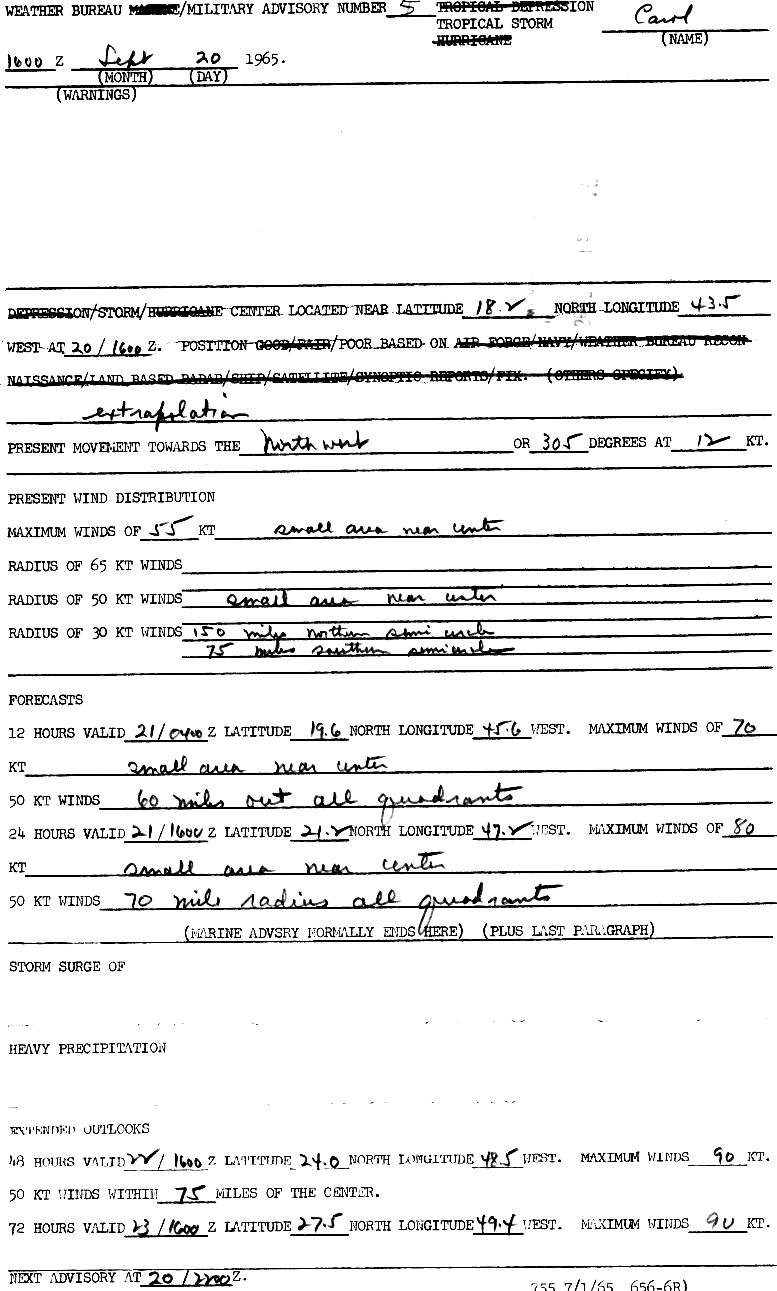 WEATHER BUREAU MARINE/MILITARY ADVISORY NUMBER 5 TROPICAL DEPRESSION Carol
TROPICAL STORM
HURRICANE (NAME)
1600 Z Sept 20 1965.
(MONTH) (DAY)
(WARNINGS)
DEPRESSION/STORM/HURRICANE CENTER LOCATED NEAR LATITUDE 18.2 NORTH LONGITUDE 43.5
WEST AT 20/1600 Z. POSITION GOOD/FAIR/POOR BASED ON AIR FORCE/NAVY/WEATHER BUREAU RECON
NAISSANCE/LAND BASED RADAR/SHIP/SATELLITE/SYNOPTIC REPORTS/FIX. (OTHERS SPECIFY)
extrapolation
PRESENT MOVEMENT TOWARDS THE Northwest OR 305 DEGREES AT 12 KT.
PRESENT WIND DISTRIBUTION
MAXIMUM WINDS OF 55 KT small area near center
RADIUS OF 65 KT WINDS
RADIUS OF 50 KT WINDS small area near center
RADIUS OF 30 KT WINDS 150 miles northern semi circle
75 miles southern semicircle
FORECASTS
12 HOURS VALID 21/0400 Z LATITUDE 19.6 NORTH LONGITUDE 45.6 WEST. MAXIMUM WINDS OF 70
KT small area near center
50 KT WINDS 60 miles out all quadrants
24 HOURS VALID 21/1600 Z LATITUDE 21.2 NORTH LONGITUDE 47.2 WEST. MAXIMUM WINDS OF 80
KT small area near center
50 KT WINDS 70 mile radius all quadrants
(MARINE ADVSRY NORMALLY ENDS HERE) (PLUS LAST PARAGRAPH)
STORM SURGE OF
HEAVY PRECIPITATION
EXTENDED OUTLOOKS
48 HOURS VALID 22/1600 Z LATITUDE 24.0 NORTH LONGITUDE 48.5 WEST. MAXIMUM WINDS 90 KT.
50 KT WINDS WITHIN 75 MILES OF THE CENTER.
72 HOURS VALID 23/1600 Z LATITUDE 27.5 NORTH LONGITUDE 49.4 WEST. MAXIMUM WINDS 90 KT.
NEXT ADVISORY AT 20/2200 Z.
755 7/1/65 656-6R)